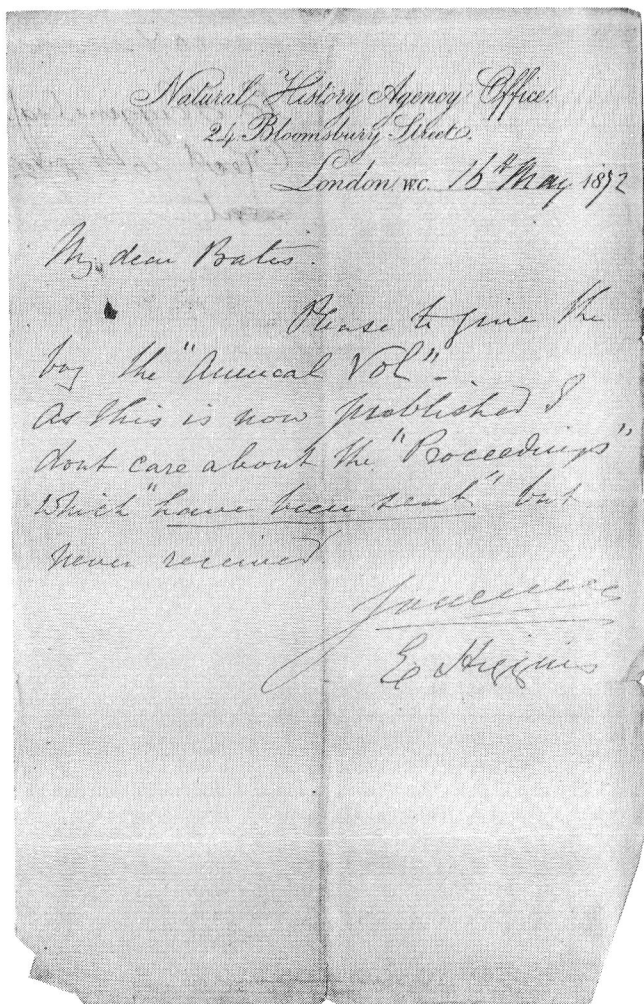 Natural History Agency Office.
24 Bloomsbury Street.
London W.C. 16th May 1872
My dear Bates.
Please to give the
boy the "Annual Vol"
As this is now published I
dont care about the "Proceedings"
which "have been sent" but
never received
E Higgins